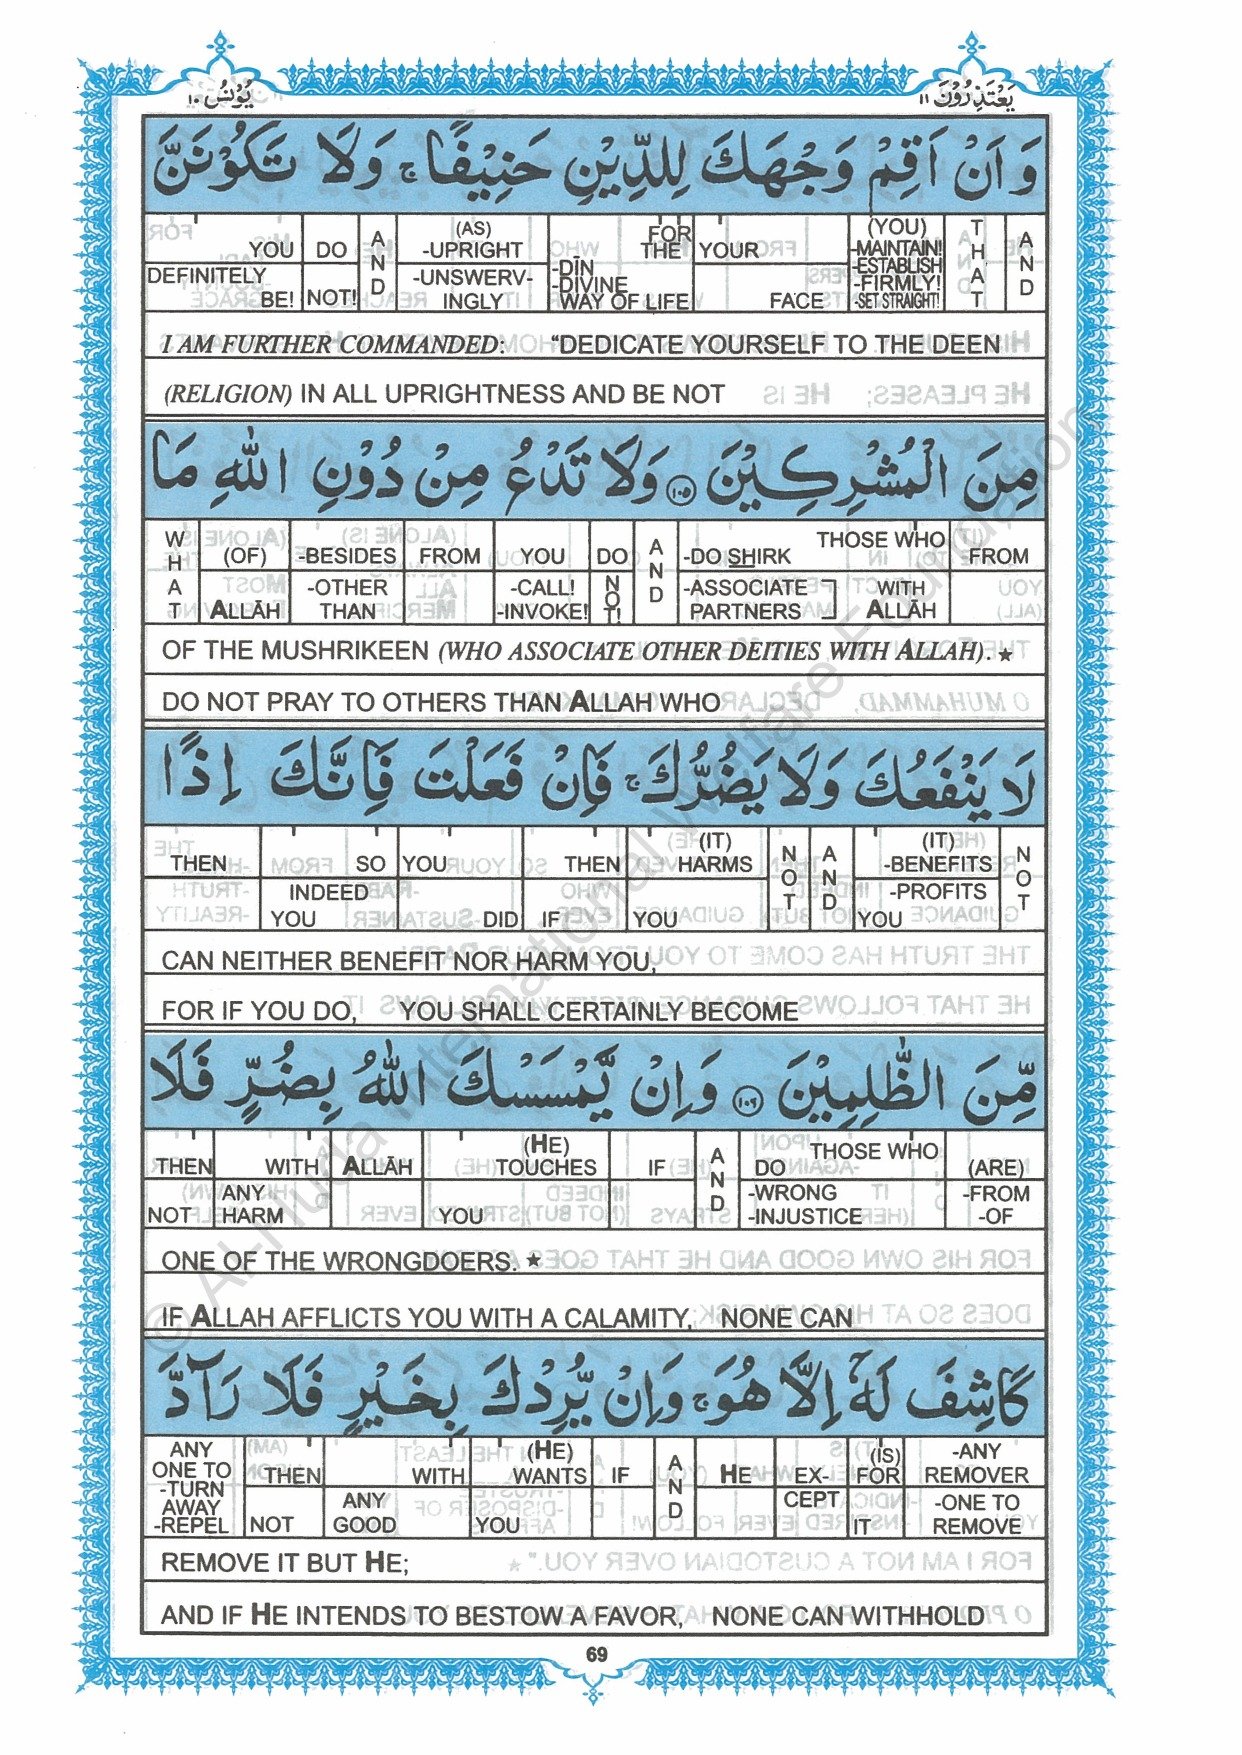 يُوْنُس ١٠
يَعْتَذِرُوْنَ ١١
وَ اَنْ اَقِمْ وَجْهَكَ لِلدِّيْنِ حَنِيْفًا ۚ وَلَا تَكُوْنَنَّ
AND
THAT
(YOU) -MAINTAIN! -ESTABLISH -FIRMLY! -SET STRAIGHT!
YOUR FACE
FOR THE -DĪN -DIVINE WAY OF LIFE
(AS) -UPRIGHT -UNSWERVINGLY
AND
DO NOT!
YOU DEFINITELY BE!
I AM FURTHER COMMANDED: "DEDICATE YOURSELF TO THE DEEN
(RELIGION) IN ALL UPRIGHTNESS AND BE NOT
مِنَ الْمُشْرِكِيْنَ ١٠٥ وَلَا تَدْعُ مِنْ دُوْنِ اللّٰهِ مَا
FROM
THOSE WHO -DO SHIRK -ASSOCIATE PARTNERS WITH ALLĀH
AND
DO NOT!
YOU -CALL! -INVOKE!
FROM
-BESIDES -OTHER THAN
(OF) ALLĀH
WHAT
OF THE MUSHRIKEEN (WHO ASSOCIATE OTHER DEITIES WITH ALLAH). ★
DO NOT PRAY TO OTHERS THAN ALLAH WHO
لَا يَنْفَعُكَ وَلَا يَضُرُّكَ ۚ فَاِنْ فَعَلْتَ فَاِنَّكَ اِذًا
NOT
(IT) -BENEFITS -PROFITS YOU
AND
NOT
(IT) HARMS YOU
THEN IF
YOU DID
SO INDEED YOU
THEN
CAN NEITHER BENEFIT NOR HARM YOU,
FOR IF YOU DO, YOU SHALL CERTAINLY BECOME
مِّنَ الظّٰلِمِيْنَ ١٠٦ وَاِنْ يَّمْسَسْكَ اللّٰهُ بِضُرٍّ فَلَا
(ARE) -FROM -OF
THOSE WHO DO -WRONG -INJUSTICE
AND
IF
(HE) TOUCHES YOU
ALLĀH
WITH ANY HARM
THEN NOT
ONE OF THE WRONGDOERS. ★
IF ALLAH AFFLICTS YOU WITH A CALAMITY, NONE CAN
كَاشِفَ لَهٗٓ اِلَّا هُوَ ۚ وَاِنْ يُّرِدْكَ بِخَيْرٍ فَلَا رَآدَّ
-ANY REMOVER -ONE TO REMOVE
(IS) FOR IT
EX-CEPT
HE
AND
IF
(HE) WANTS YOU
WITH ANY GOOD
THEN NOT
ANY ONE TO -TURN AWAY -REPEL
REMOVE IT BUT HE;
AND IF HE INTENDS TO BESTOW A FAVOR, NONE CAN WITHHOLD
69
© Al-Huda International Welfare Foundation